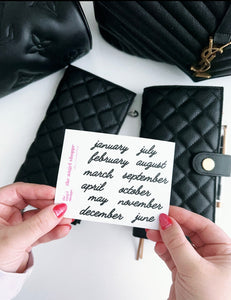 january july
february august
march september
april october
may november
december june